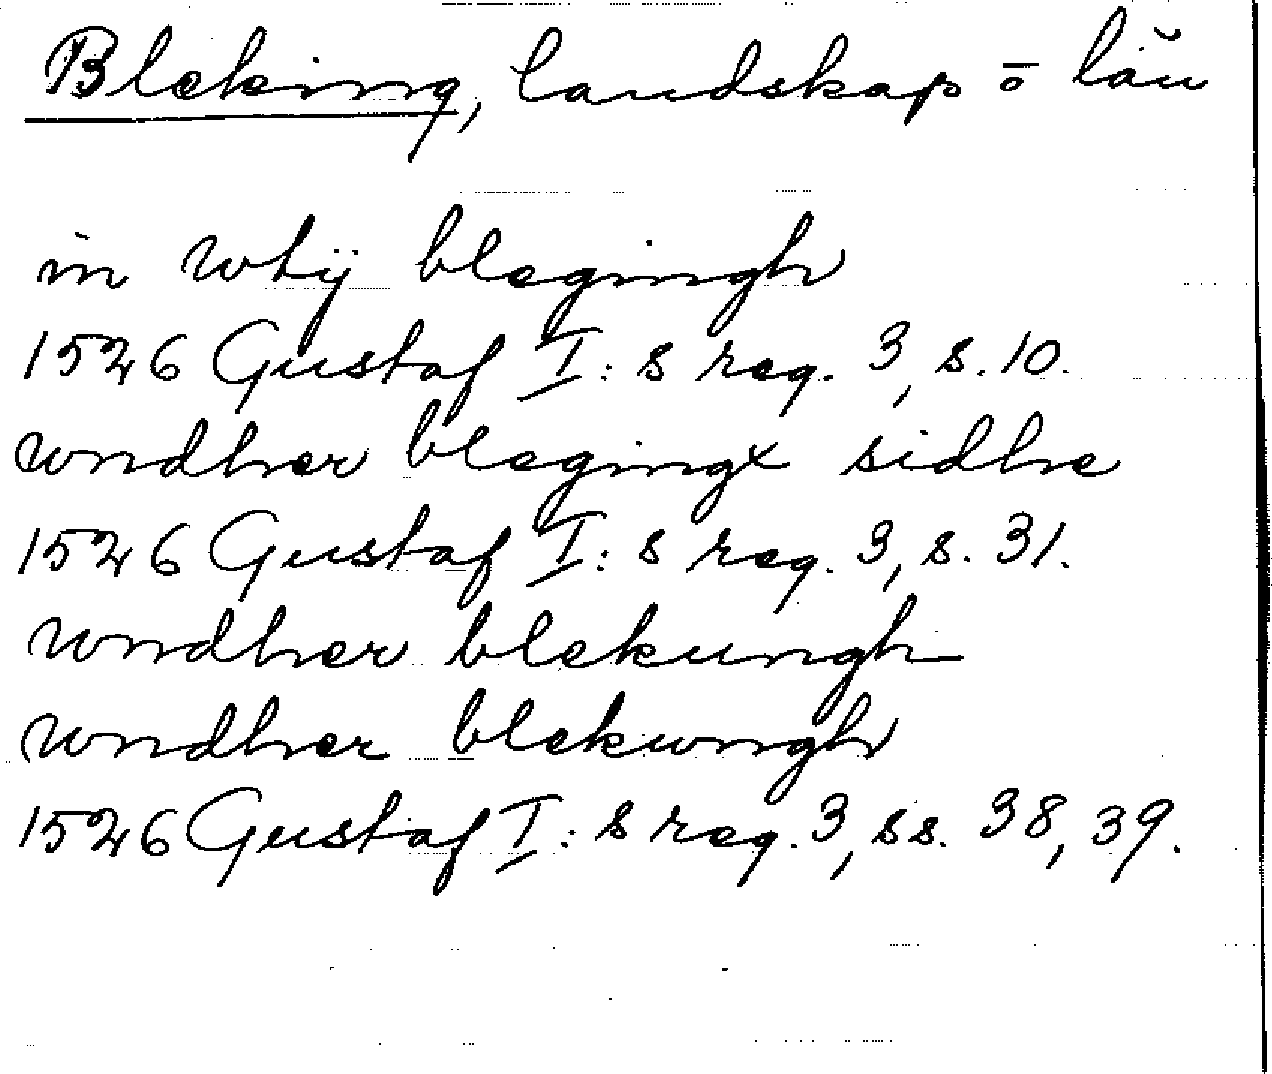 Bleking, landskap o län
in whÿ blegingh
1526 Gustaf I:s reg. 3, s. 10.
wndher blegingx sidhe
1526 Gustaf I:s reg. 3, s. 31.
wndher blekungh
wndher blekwngh
1526 Gustaf I:s reg. 3, ss. 38, 39.